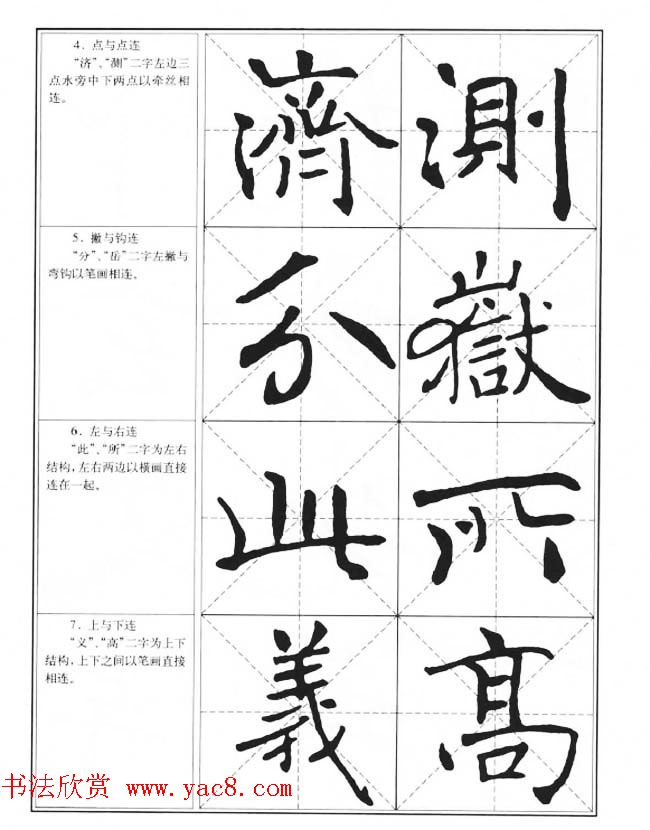 4. 点与点连
“济”、“测”二字左边三
点水旁中下两点以牵丝相
连。
濟 測
5. 撇与钩连
“分”、“岳”二字左撇与
弯钩以笔画相连。
分 嶽
6. 左与右连
“此”、“所”二字为左右
结构，左右两边以横画直接
连在一起。
此 所
7. 上与下连
“义”、“高”二字为上下
结构，上下之间以笔画直接
相连。
義 髙
书法欣赏 www.yac8.com